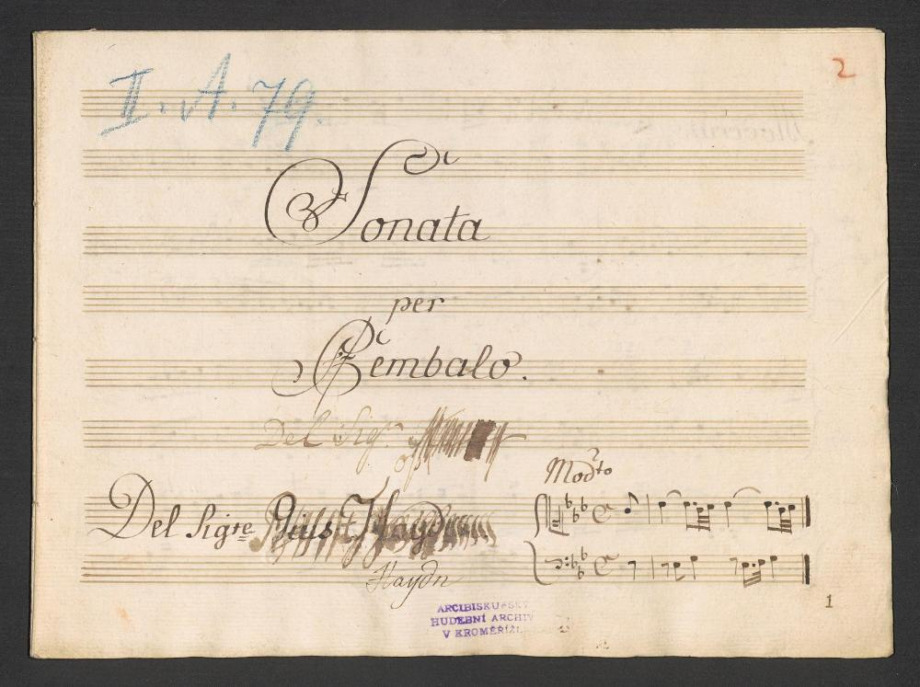 II. A. 79.
2
Sonata
per
Cembalo.
Del Sigre
Modto
Del Sigre Haydn
Haydn
ARCIBISKUPSKÝ
HUDEBNÍ ARCHIV
V KROMĚŘÍŽI
1